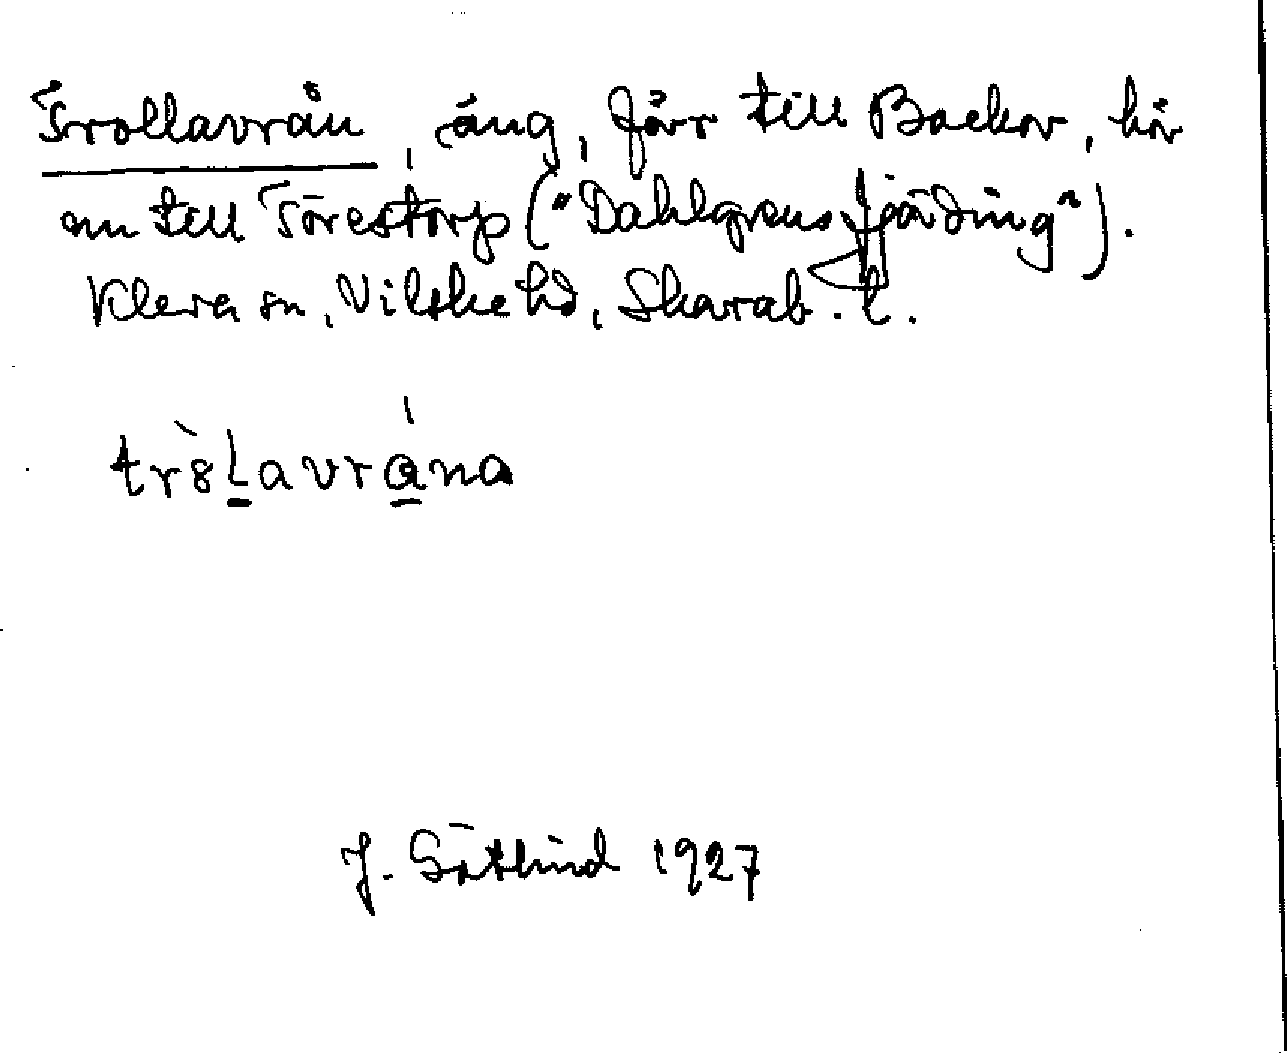 Trollavrån, äng, förr till Backor, hör
nu till Törestorp ("Dahlgrens fjärding").
Kleva sn, Vilske hd, Skarab. l.
tr8Lavrana
J. Götlind 1927